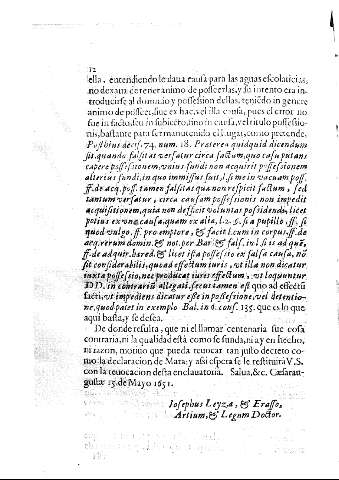 12
ella, entendiendo le daua causa para las aguas escolaticias,
no dexan de tener animo de posseerlas, y so intento era in-
troducirse al dominio y possession dellas, teniēdo in genere
animo de posseer, siue ex hac, vel illa causa, pues el error no
fue in facto, seu in subiecto, sino in causa, vel titulo possessio-
nis, bastante para ser manutenido el lugar, como pretende.
Posthius decis. 74. num. 18. Praterea quidquid dicendum
sit, quando falsitas versatur circa factum, quo casu putans
capere possessionem, vnius fundi non acquirit possessionem
alterius fundi, in quo immissus fuit, l. si me in vacuam poss.
ff. de acq. poss. tamen falsitas qua non respicit factum, sed
tantum versatur, circa causam possessionis non impedit
acquisitionem, quia non deficit voluntas possidendi, licet
potius ex vna causa, quam ex alta, l. 2. §. si a pupillo. ff. si
quod vulgo. ff. pro emptore, & facit l. cum in corpus. ff. de
acq. rerum domin. & not. per Bar. & Fals. in l. si is ad quē,
ff. de adquir. hæred. & licet ista possessio ex falsa causa, nō
sit considerabilis, quoad effectum iuris, vt illa non dicatur
iuxta possessio, nec producat iuris effectum, vt loquuntur
DD. in contrariū allegati, secus tamen est quo ad effectū
facti, vt impediens dicatur esse in possessione, vel detentio-
ne, quod patet in exemplo Bal. in d. cons. 135. que es lo que
aqui basta, y se desea.
De donde resulta, que ni el llamar centenaria fue cosa
contraria, ni la qualidad está como se funda, ni ay en hecho,
ni razon, motiuo que pueda reuocar tan justo decreto co-
mo la declaracion de Mara; y assi espera se le restituirà V.S.
con la reuocacion desta enclauatoria. Salua, &c. Cæsarau-
gustæ 15. de Mayo 1651.
Iosephus Leyza, & Erasso,
Artium, & Legum Doctor.